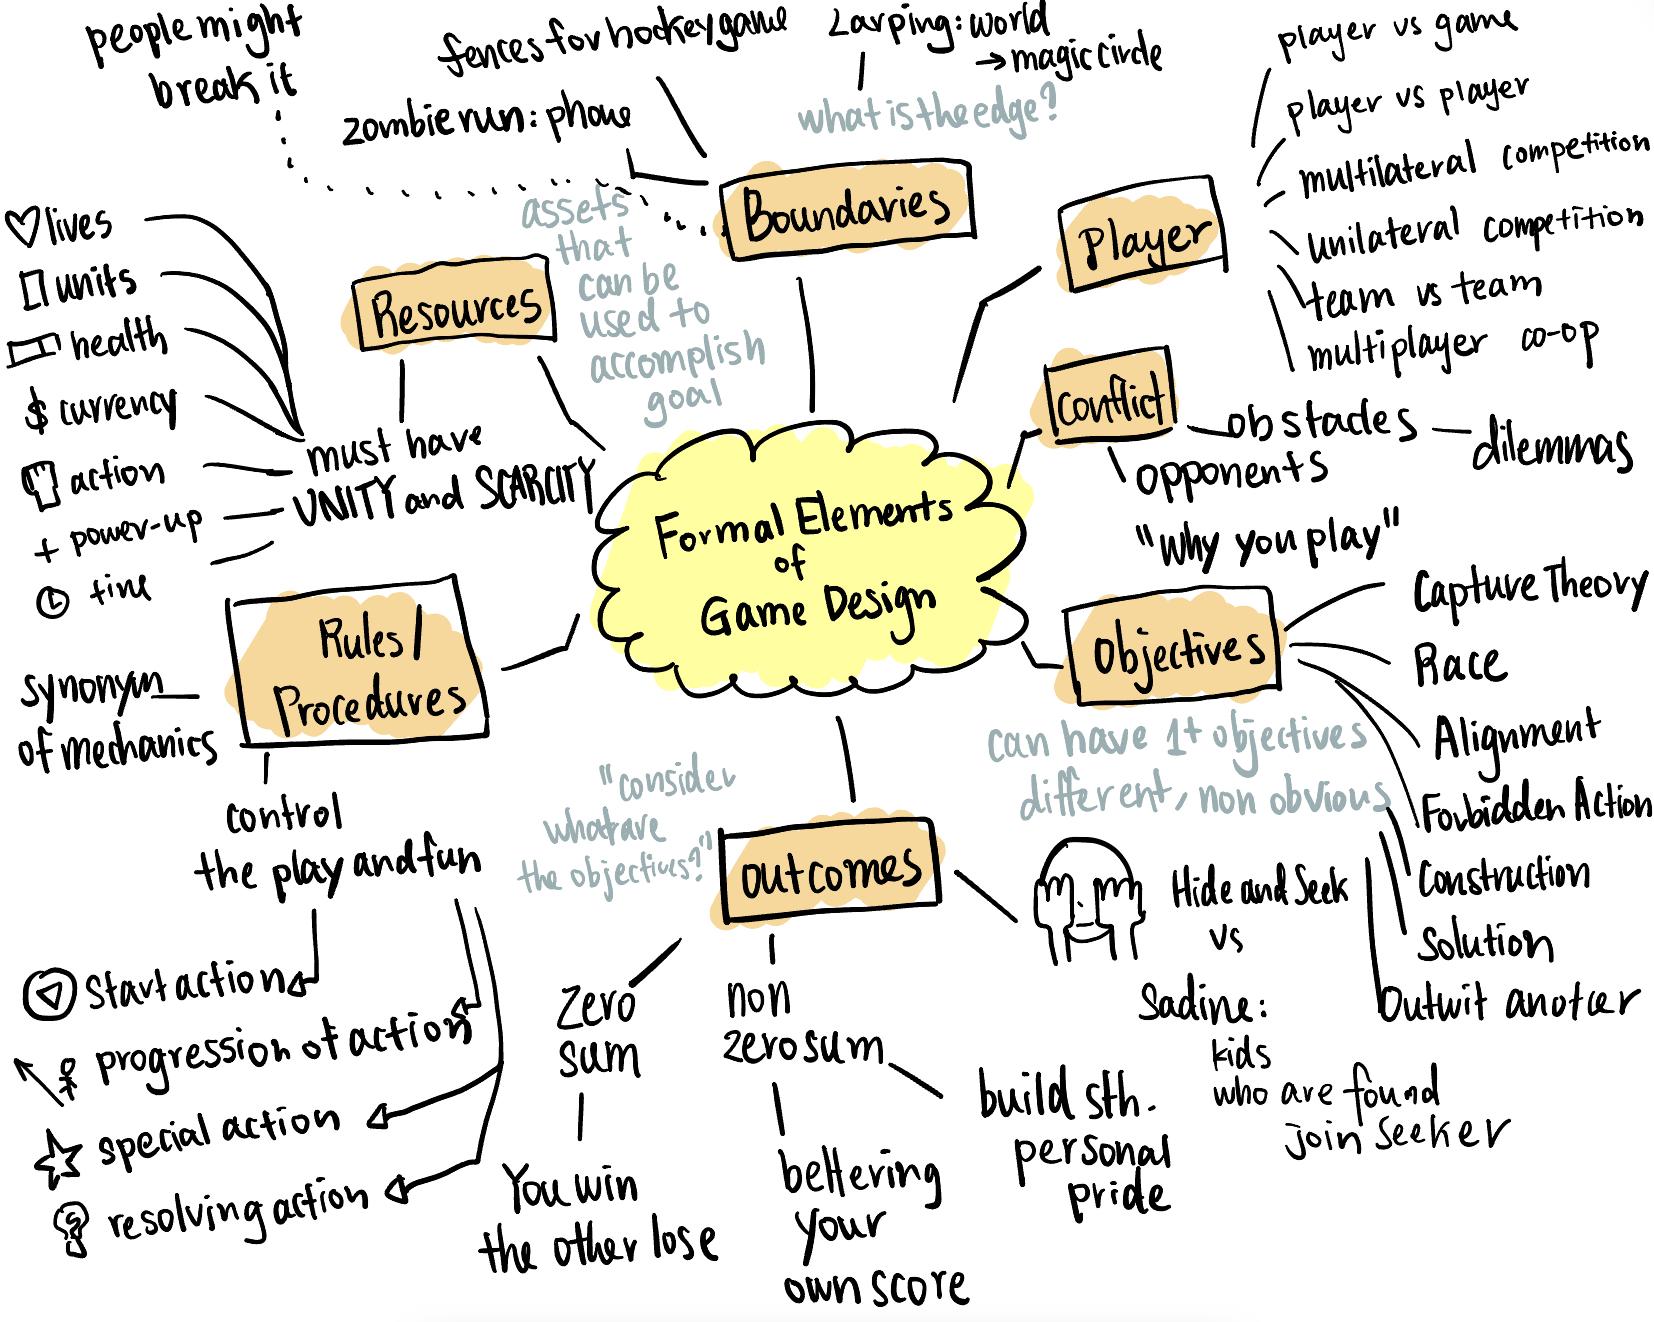 people might
break it
fences for hockey game
zombie run: phone
Larping: world
→ magic circle
what is the edge?
Boundaries
player vs game
player vs player
multilateral competition
unilateral competition
team vs team
multiplayer co-op
Player
lives
units
health
$ currency
action
+ power-up
time
Resources
assets
that
can be
used to
accomplish
goal
must have
UNITY and SCARCITY
Conflict
obstacles
dilemmas
opponents
Formal Elements
of
Game Design
"Why you play"
Objectives
Capture Theory
Race
Alignment
Forbidden Action
Construction
Solution
Outwit
can have 1+ objectives
different, non obvious
Rules/
Procedures
synonym
of mechanics
control
the play and fun
Start action
progression of action
special action
resolving action
"consider
what are
the objectives?"
outcomes
Zero
sum
You win
the other lose
non
zero sum
bettering
your
own score
build sth.
personal
pride
Hide and Seek
vs
Sadine:
kids
who are found
join seeker